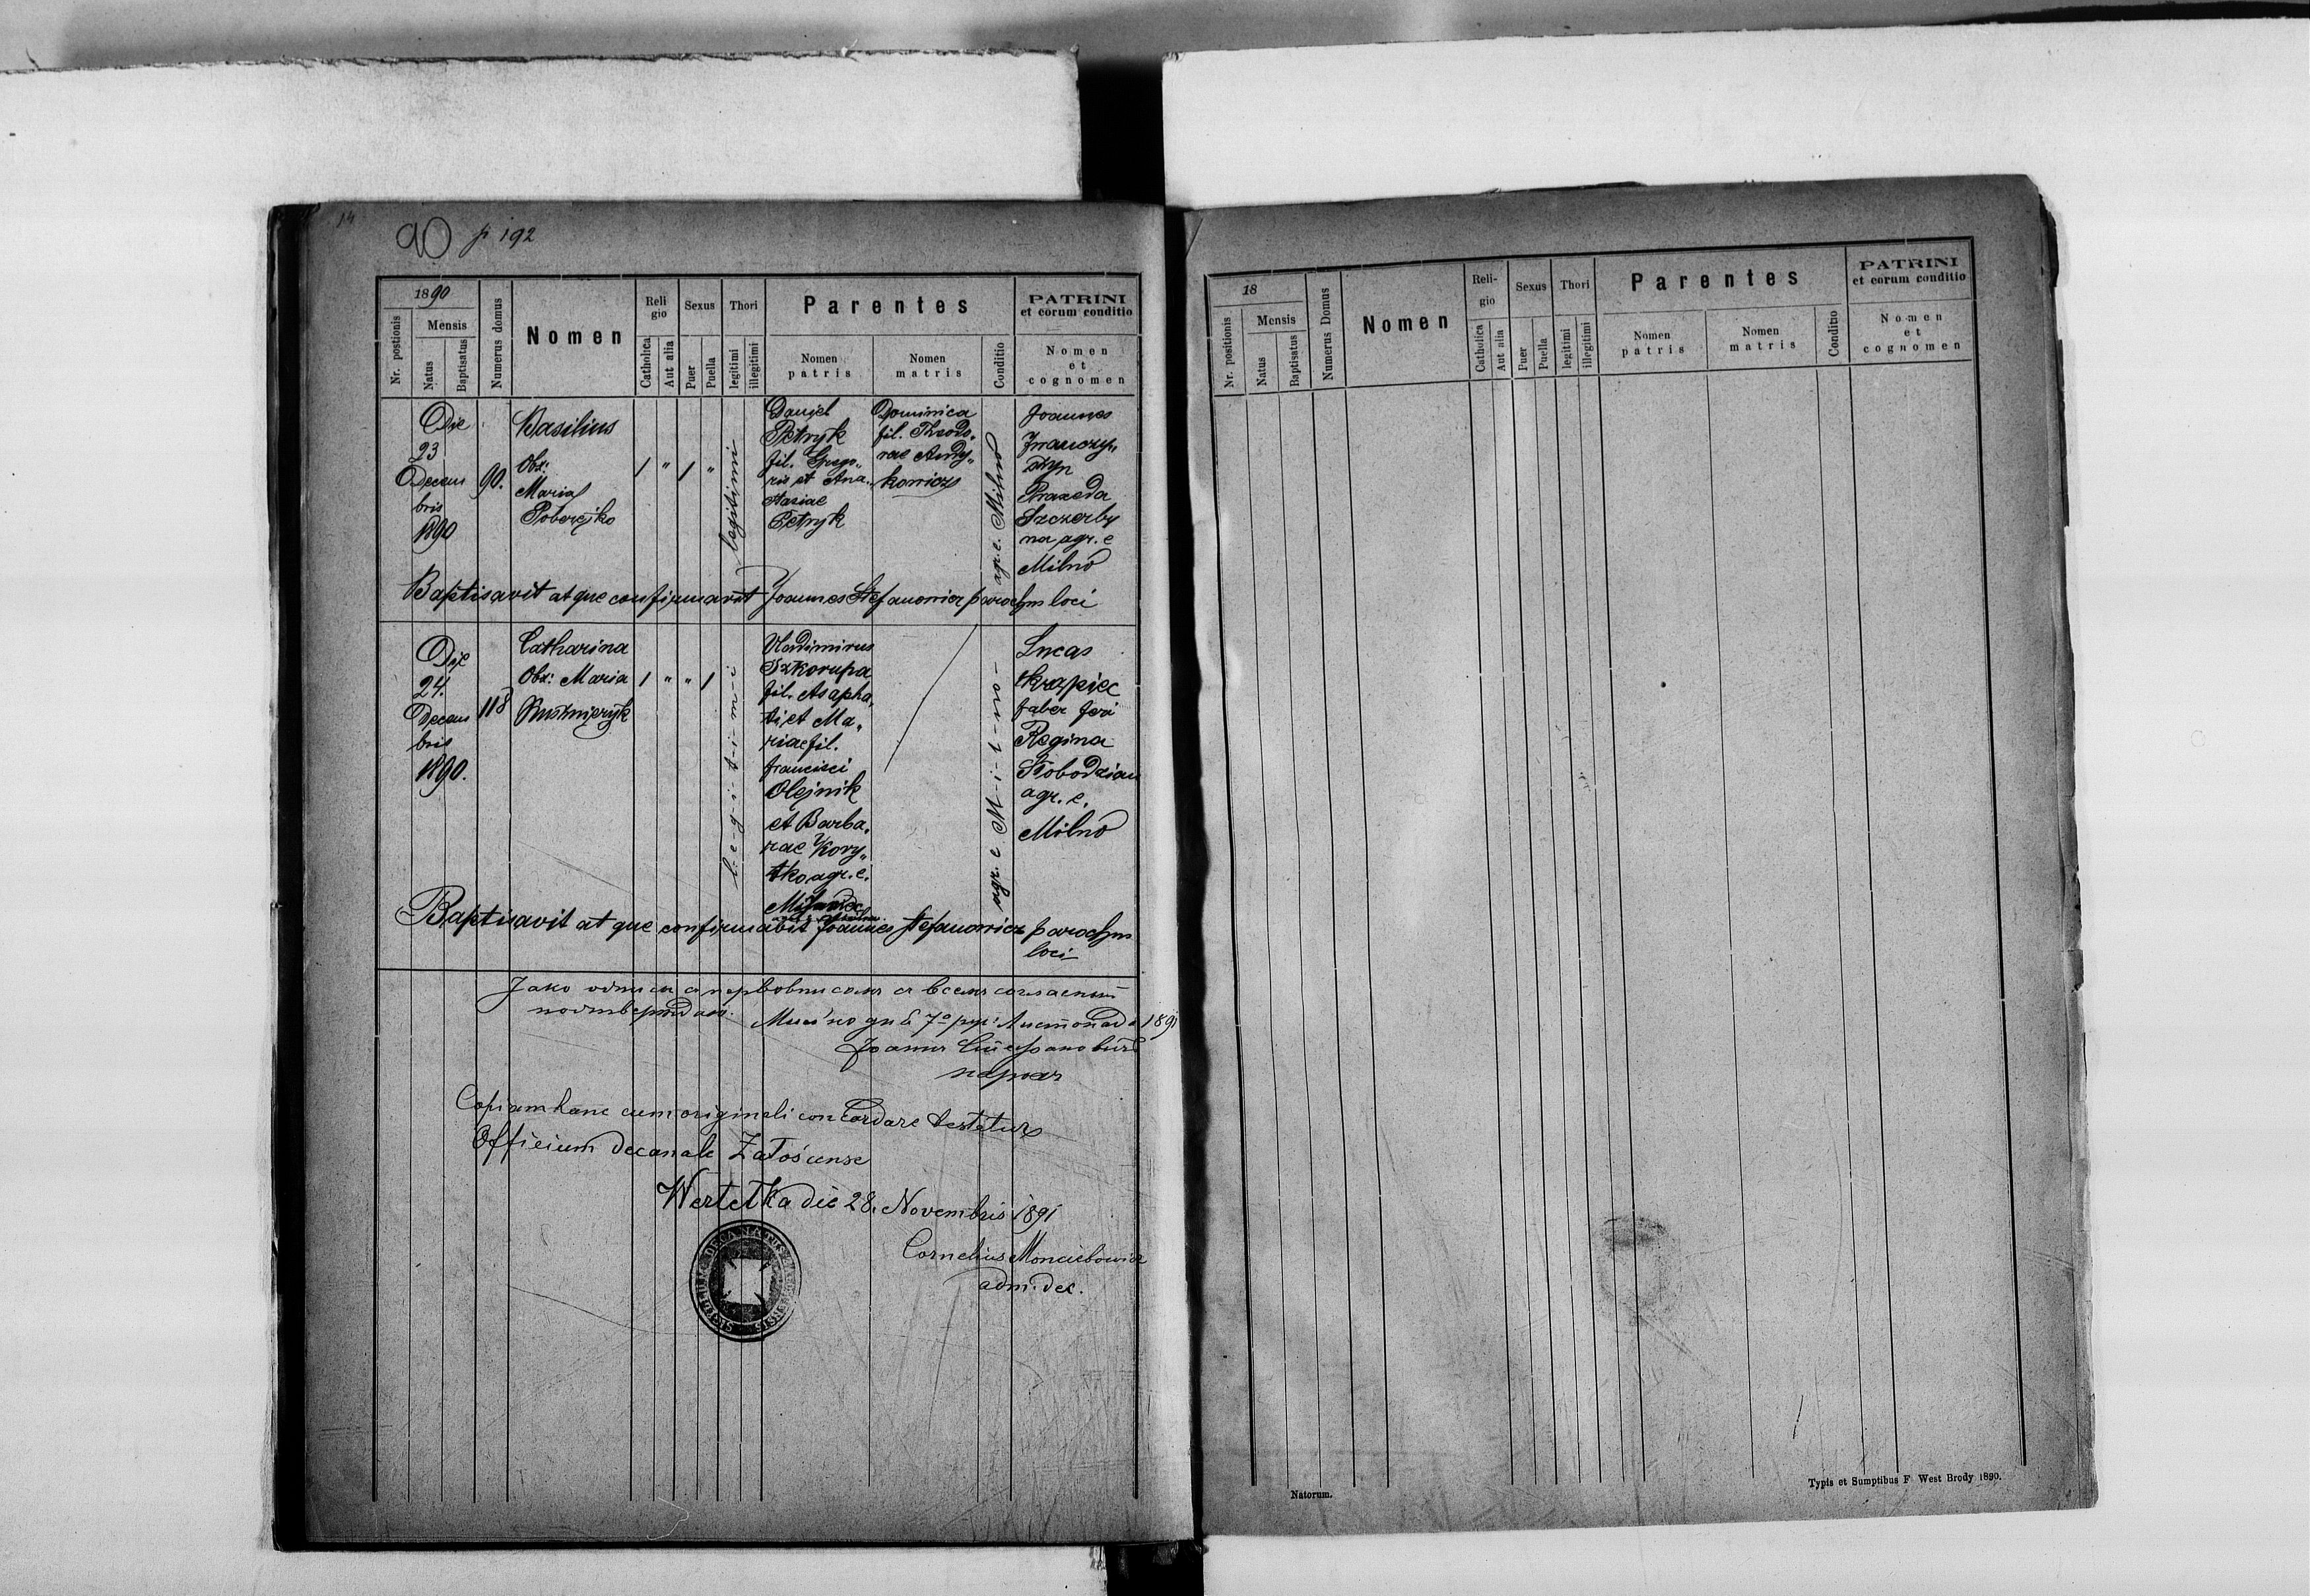 14
90 p 192
1890
Nr. postionis
Mensis
Natus
Baptisatus
Numerus domus
Nomen
Reli
gio
Catholica
Aut alia
Sexus
Puer
Puella
Thori
legitimi
illegitimi
Parentes
Nomen
patris
Nomen
matris
Conditio
PATRINI
et eorum conditio
Nomen
et
cognomen
Die
23
Decem
bris
1890
90.
Basilius
Obs:
Maria
Poberejko
1 " 1 "
legitimi
Daniel
Petryk
fil. Grego„
rii et Ana„
stasiae
Petryk
Dominica
fil. Theodo„
rae Andy„
kowicz
agr. e. Milno
Joannes
Franczy„
szyn
Praxeda
Szczerby
na agr. e
Milno
Baptisavit atque confirmavit Joannes Stefanowicz parochus loci
Die
24.
Decem
bris
1890.
118
Catharina
Obs: Maria
Kuśnieryk
1 " " 1
l-e-g-i-t-i-m-i
Vladimirus
Szkorupa
fil. Asapha„
ti et Ma„
riae fil.
Francisci
Olejnik
et Barba„
rae Kory„
tko agr. e.
agr. e M-i-l-no-
Lucas
Skrzpiec
faber feri
Regina
Słobodzian
agr. e.
Milno
Baptisavit atque confirmabit Joannes Stefanowicz parochus
loci
Copiam hanc cum originali concordare testatur
Officium decanale Załoścense
Wertełka die 28. Novembris 1891
Cornelius
adm. dec.
18
Nr. positionis
Mensis
Natus
Baptisatus
Numerus Domus
Nomen
Reli-
gio
Catholica
Aut alia
Sexus
Puer
Puella
Thori
legitimi
illegitimi
Parentes
Nomen
patris
Nomen
matris
Conditio
PATRINI
et eorum conditio
Nomen
et
cognomen
Natorum.
Typis et Sumptibus F. West Brody 1890.